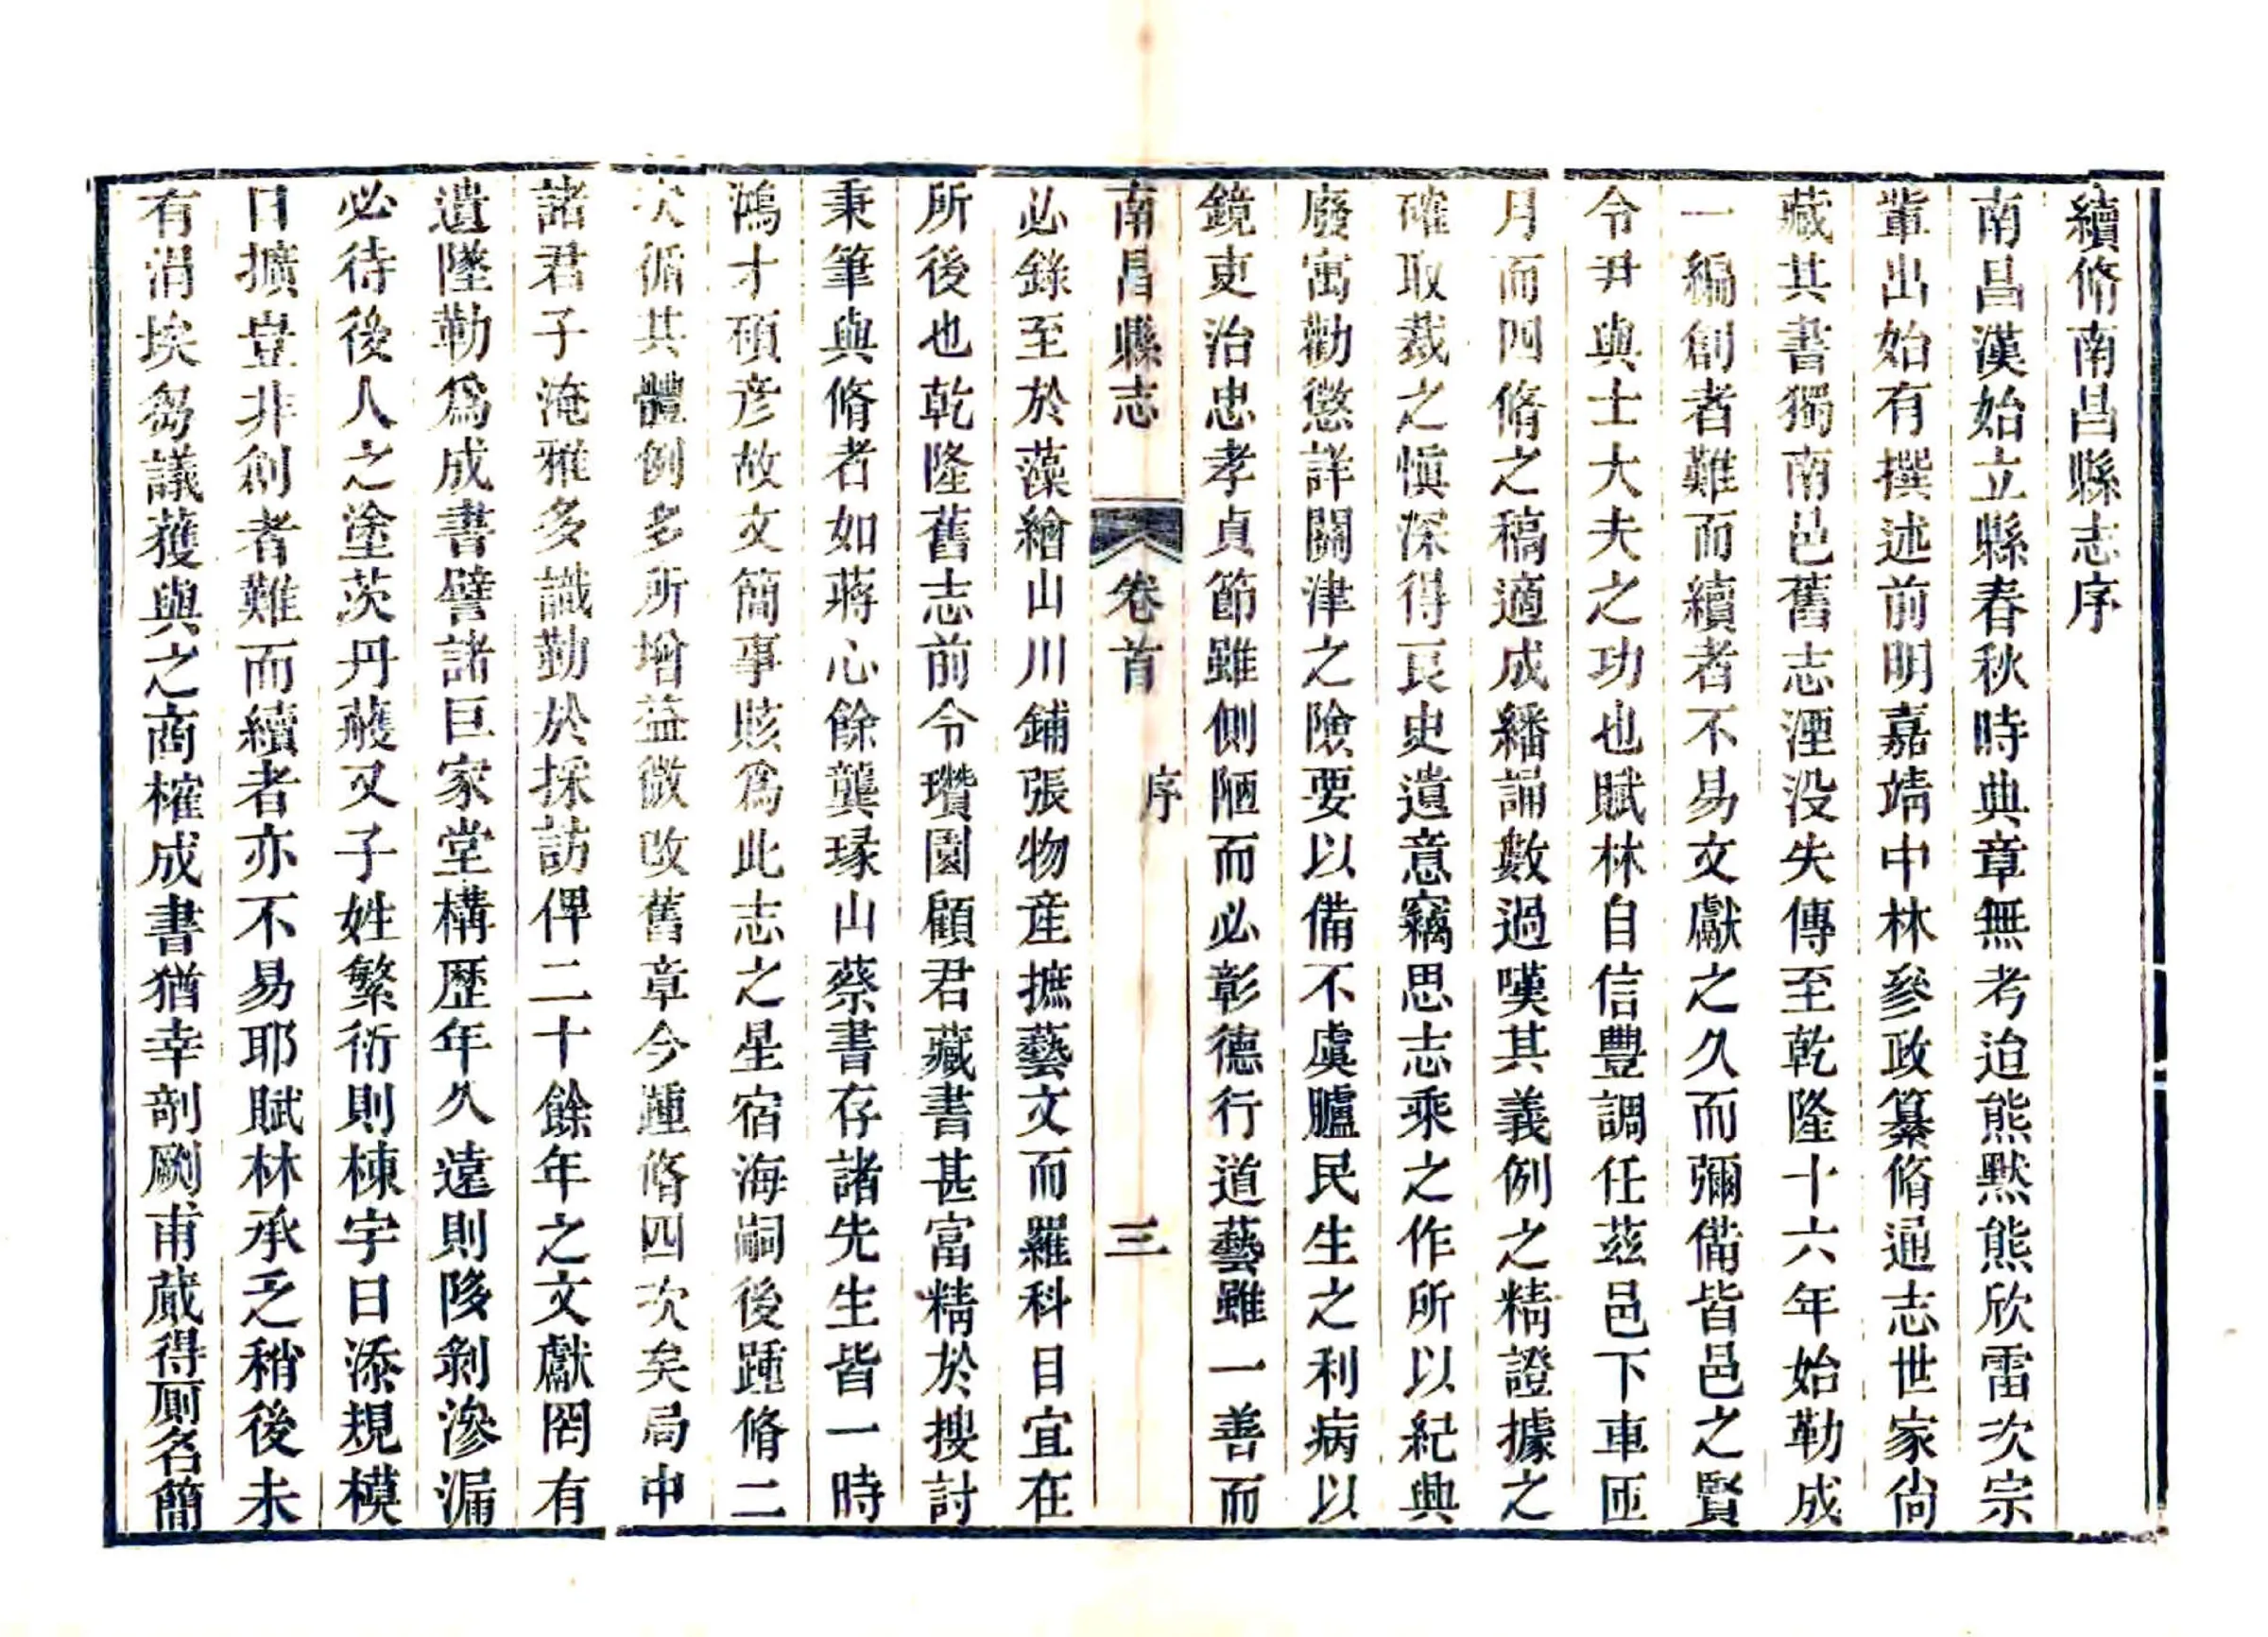 續脩南昌縣志序
南昌漢始立縣春秋時典章無考迨熊默熊欣雷次宗
輩出始有撰述前明嘉靖中林參政纂脩通志世家尙
藏其書獨南邑舊志湮没失傳至乾隆十六年始勒成
一編創者難而續者不易文獻之久而彌備皆邑之賢
令尹與士大夫之功也賦林自信豐調任茲邑下車匝
月而四脩之稿適成繙誦數過嘆其義例之精證據之
確取裁之愼深得良史遺意竊思志乘之作所以紀典
廢寓勸懲詳關津之險要以備不虞臚民生之利病以
鏡吏治忠孝貞節雖側陋而必彰德行道藝雖一善而
南昌縣志 卷首 序 三
必錄至於藻繪山川鋪張物産摭藝文而羅科目宜在
所後也乾隆舊志前令瓚園顧君藏書甚富精於搜討
秉筆與脩者如蔣心餘龔瑑山蔡書存諸先生皆一時
鴻才碩彦故文簡事賅爲此志之星宿海嗣後踵脩二
次循其體例多所增益微改舊章今踵脩四次矣局中
諸君子淹雅多識勤於採訪俾二十餘年之文獻罔有
遺墜勒爲成書譬諸巨家堂構歷年久遠則陊剝滲漏
必待後人之塗茨丹雘又子姓繁衍則棟宇日添規模
日擴豈非創者難而續者亦不易耶賦林承乏稍後未
有涓埃芻議獲與之商榷成書猶幸剞劂甫蕆得厠名簡